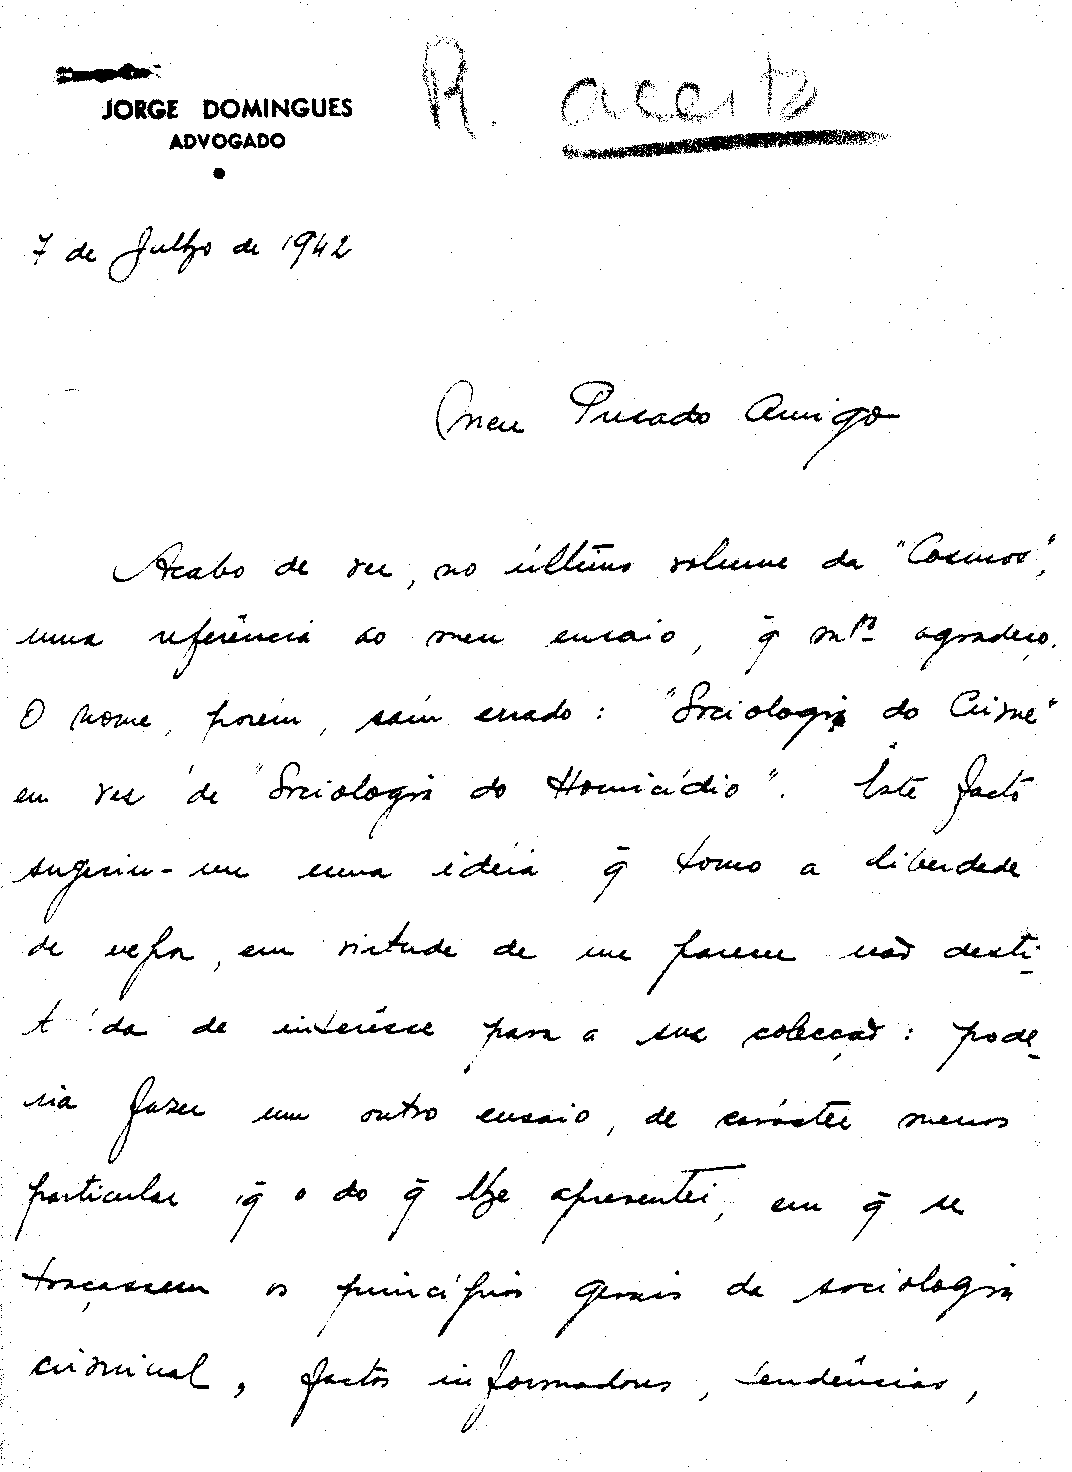 JORGE DOMINGUES
ADVOGADO
R. aceita
7 de Julho de 1942
Meu Prezado Amigo
Acabo de ver, no último volume da "Cosmos",
uma referência ao meu ensaio, q̄ mto agradeço.
O nome, porém, saíu errado: "Sociologia do Crime"
em vez de "Sociologia do Homicídio". Êste facto
sugeriu-me uma ideia q̄ tomo a liberdade
de expor, em virtude de me parecer não desti-
tuída de interêsse para a sua colecção: pode-
ria fazer um outro ensaio, de carácter menos
particular q̄ o do q̄ lhe apresentei, em q̄ se
traçassem os princípios gerais da sociologia
criminal, factos informadores, tendências,